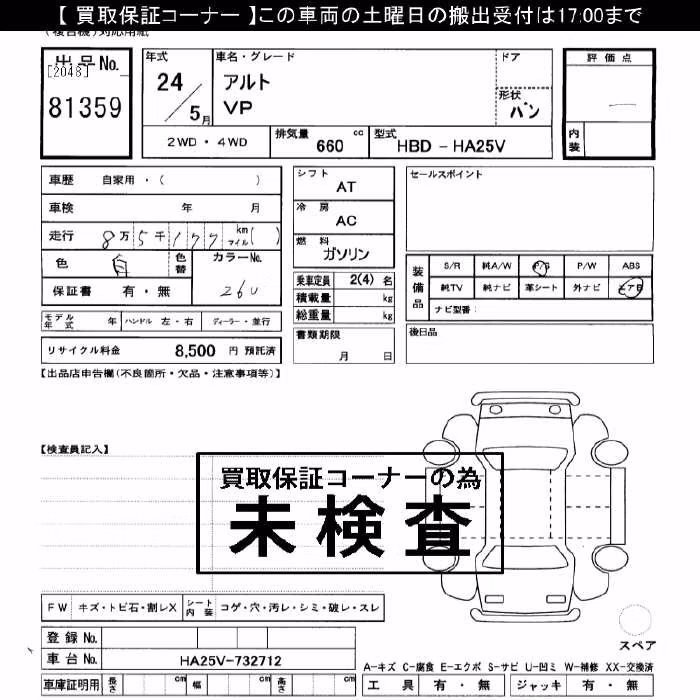 【 買取保証コーナー 】この車両の土曜日の搬出受付は17:00まで
出品No.
[2048]
81359
年式
24
5月
車名・グレード
アルト
VP
ドア
形状
バン
評価点
内装
2WD・4WD
排気量 660 cc
型式 HBD - HA25V
車歴 自家用・( )
車検 年 月
走行 8万5千177 km マイル( )
色 白 色替
カラーNo. 26U
保証書 有・無
シフト AT
冷房 AC
燃料 ガソリン
乗車定員 2(4) 名
積載量 kg
総重量 kg
書類期限
月 日
セールスポイント
装備品
S/R 純A/W P/S P/W ABS
純TV 純ナビ 革シート 外ナビ エアB
ナビ型番:
後日品
モデル年式 年 ハンドル 左・右 ディーラー・並行
リサイクル料金 8,500 円 預託済
【出品店申告欄(不良箇所・欠品・注意事項等)】
【検査員記入】
買取保証コーナーの為
未検査
FW キズ・トビ石・割レX シート内装 コゲ・穴・汚レ・シミ・破レ・スレ
登録No.
車台No. HA25V-732712
車庫証明用 長さ cm 幅 cm 高さ cm
スペア
A-キズ C-腐食 E-エクボ S-サビ U-凹ミ W-補修 XX-交換済
工具 有・無 ジャッキ 有・無